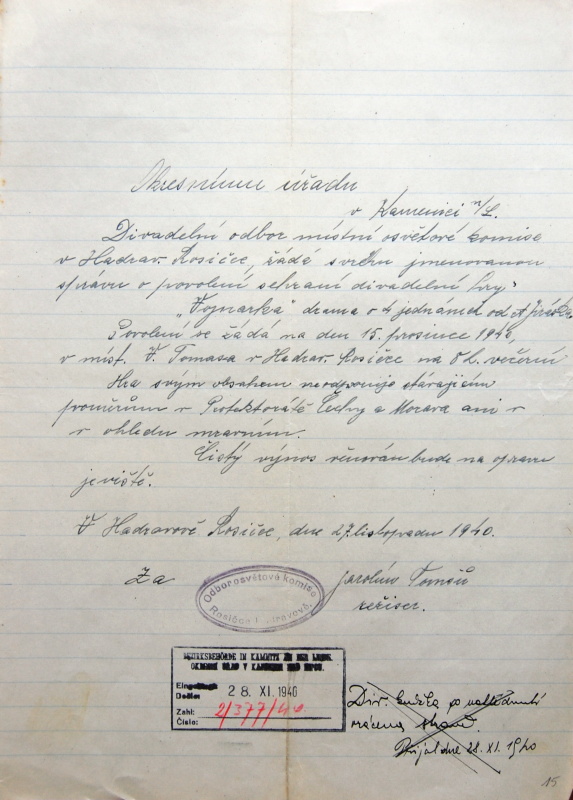 Okresnímu úřadu
v Kamenici n/L.
Divadelní odbor místní osvětové komise
v Hadrav. Rosičce, žádá svrchu jmenovanou
správu o povolení sehraní divadelní hry
„Vojnarka" drama o 4 jednáních od A. Jiráska
Povolení se žádá na den 15. prosince 1940,
v míst. F. Tomasa v Hadrav. Rosičce na 8 h. večerní
Hra svým obsahem neodporuje stávajícím
poměrům v Protektorátě Čechy a Morava ani v
v ohledu mravním.
Čistý výnos věnován bude na opravu
jeviště.
V Hadravově Rosičce, dne 27. listopadu 1940.
Za Jarolím Tomšů
režiser.
Odbor osvětové komise
Rosička Hadravova.
BEZIRKSBEHÖRDE IN KAMNITZ AN DER LINDE.
OKRESNÍ ÚŘAD V KAMENICI NAD LIPOU.
Eingelangt
Došlo: 28. XI. 1940
Zahl: 2/377/40
Číslo:
Div. knížka po nahlédnutí
vrácena straně.
Přijal dne 28. XI. 1940
15